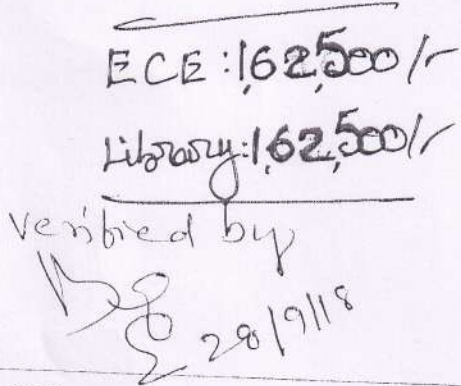 ECE : 1,62,500/-
Library: 1,62,500/-
verified by
28/9/18